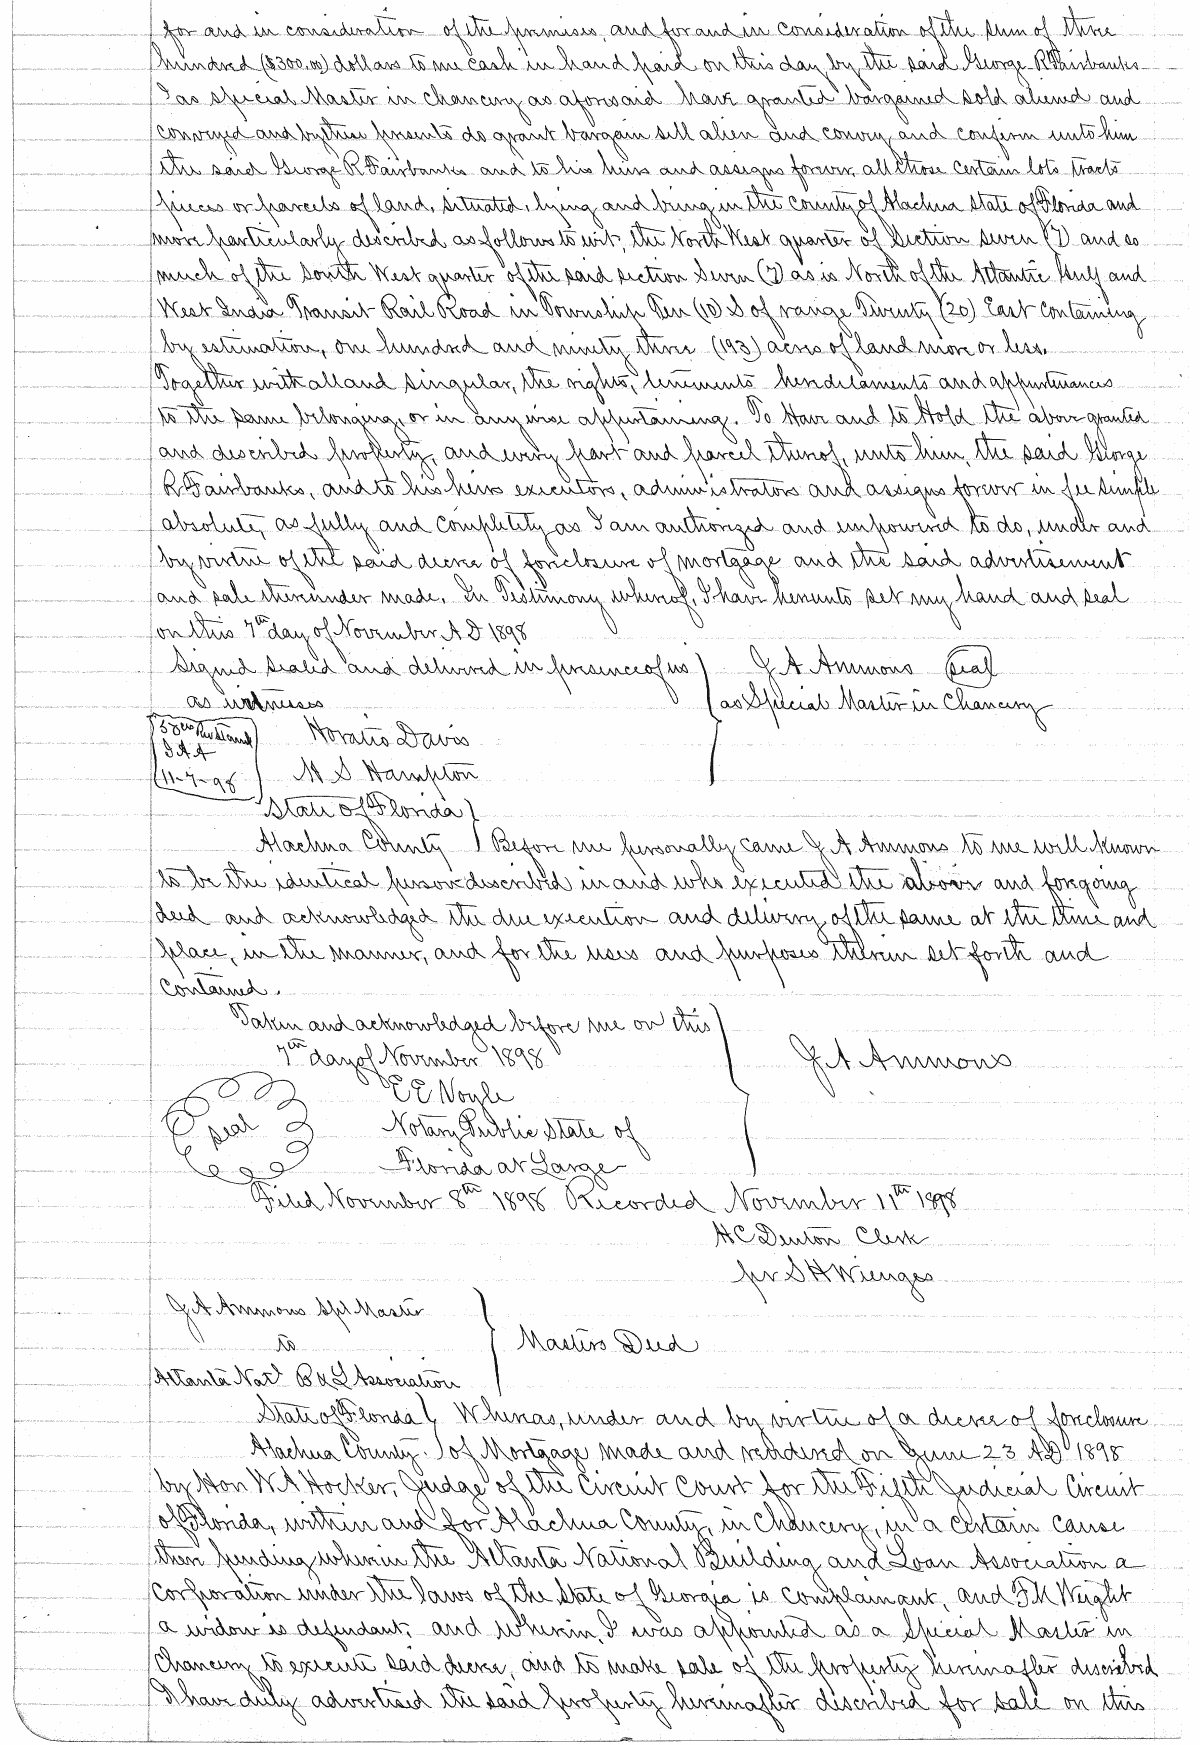 for and in consideration of the premises, and for and in consideration of the sum of three
hundred ($300.00) dollars to me cash in hand paid on this day by the said George R Fairbanks
I as special Master in Chancery as aforesaid have granted bargained sold aliened and
conveyed and by these presents do grant bargain sell alien and convey and confirm unto him
the said George R Fairbanks and to his heirs and assigns forever, all those certain lots tracts
pieces or parcels of land, situated, lying and being in the County of Alachua State of Florida and
more particularly described as follows to wit, the North West quarter of Section seven (7) and so
much of the South West quarter of the said section Seven (7) as is North of the Atlantic Gulf and
West India Transit Rail Road in Township Ten (10) S of range Twenty (20) East containing
by estimation, one hundred and ninety three (193) acres of land more or less.
Together with all and singular, the rights, tenements hereditaments and appurtenances
to the same belonging, or in any wise appertaining. To Have and to Hold the above granted
and described property, and every part and parcel thereof, unto him, the said George
R Fairbanks, and to his heirs executors, administrators and assigns forever in fee simple
absolute, as fully and completely as I am authorized and empowered to do, under and
by virtue of the said decree of foreclosure of mortgage and the said advertisement
and sale thereunder made. In Testimony whereof, I have hereunto set my hand and seal
on this 7th day of November A D 1898
Signed sealed and delivered in presence of us ) G A Ammons (seal)
as witnesses as Special Master in Chancery
Horatio Davis
G A A
11-7-98 H S Hampton
State of Florida
Alachua County Before me personally came G A Ammons to me well known
to be the identical person described in and who executed the above and foregoing
deed and acknowledged the due execution and delivery of the same at the time and
place, in the manner, and for the uses and purposes therein set forth and
contained.
Taken and acknowledged before me on this
7th day of November 1898 G A Ammons
E E Voyle
seal Notary Public State of
Florida at Large
Filed November 8th 1898 Recorded November 11th 1898
H C Denton Clerk
pr S H Wienges
G A Ammons Spl Master
to Masters Deed
Atlanta Nat'l B & L Association
State of Florida Whereas, under and by virtue of a decree of foreclosure
Alachua County. of Mortgage made and rendered on June 23 AD 1898
by Hon W A Hocker, Judge of the Circuit Court for the Fifth Judicial Circuit
of Florida, within and for Alachua County, in Chancery, in a certain cause
then pending wherein the Atlanta National Building and Loan Association a
corporation under the laws of the State of Georgia is complainant, and F K Weight
a widow is defendant; and wherein, I was appointed as a Special Master in
Chancery to execute said decree, and to make sale of the property hereinafter described
I have duly advertised the said property hereinafter described for sale on this